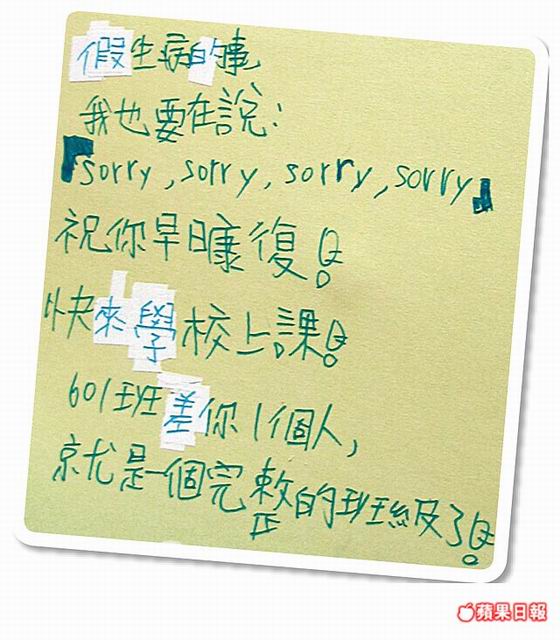 假生病的事,
我也要在說:
「sorry,sorry,sorry,sorry」
祝你早日康復!
快來學校上課!
601班差你1個人,
就是一個完整的班級了!
蘋果日報